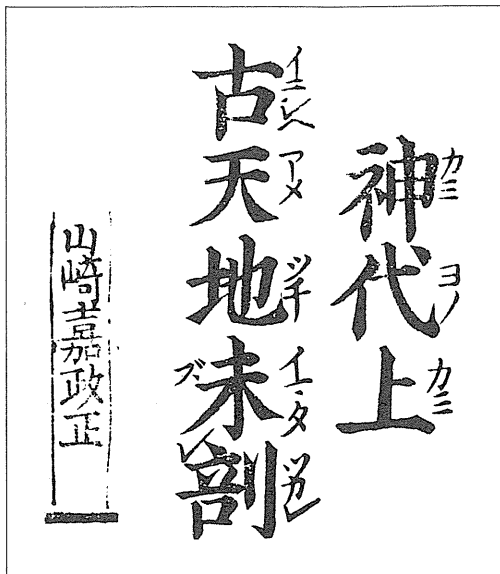 神代上
カミ ヨノ カミ
古天地未剖
イニシヘ アメ ツチ イマタ ワカレ
ズ レ
山﨑嘉政正